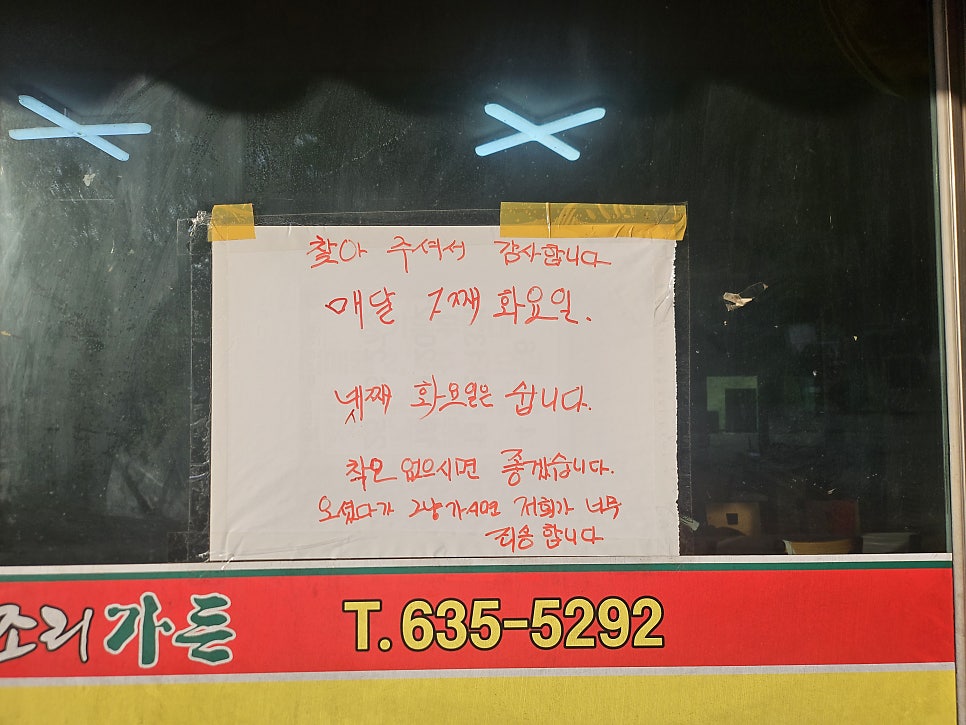 찾아 주셔서 감사합니다
매달 화요일.
넷째 화요일은 쉽니다.
착오 없으시면 좋겠습니다.
오셨다가 그냥 가시면 저희가 너무
죄송 합니다
가든 T. 635-5292